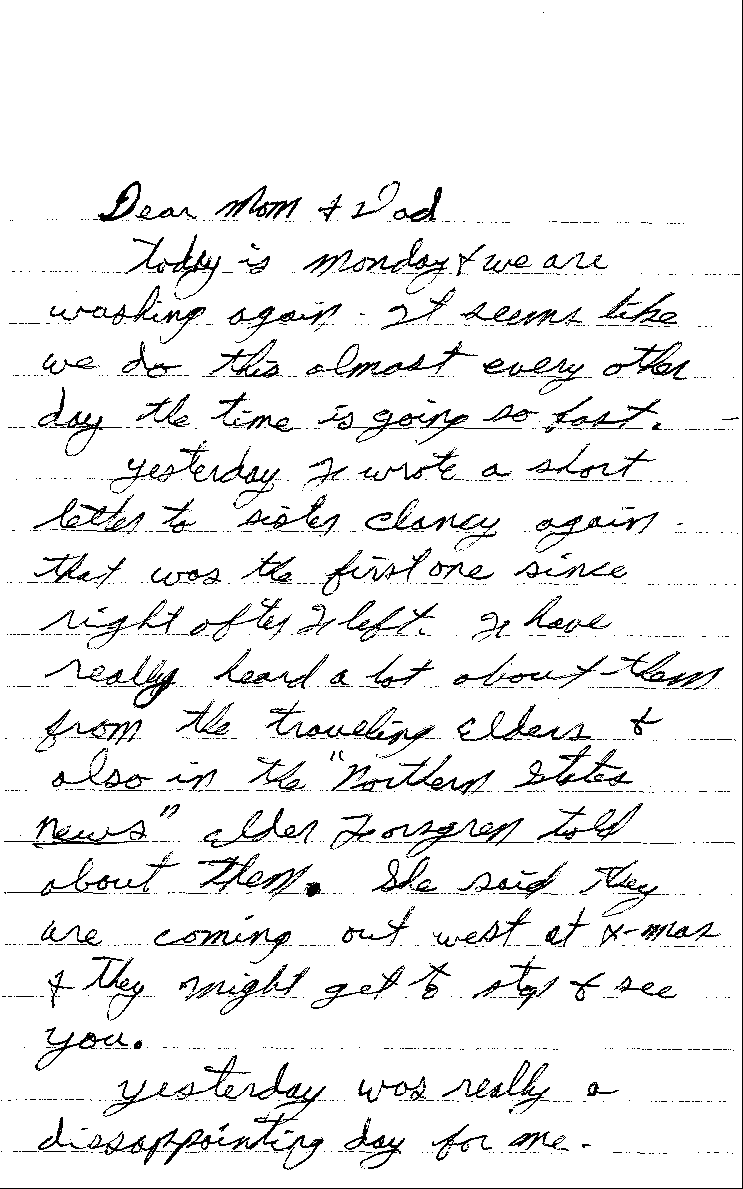 Dear Mom & Dad
today is monday & we are
washing again. It seems like
we do this almost every other
day the time is going so fast.
yesterday I wrote a short
letter to sister clancy again.
that was the first one since
right after I left. I have
really heard a lot about them
from the traveling elders &
also in the "Northern States
news" elder Forsgren told
about them. She said they
are coming out west at x-mas
& they might get to stop & see
you.
yesterday was really a
dissappointing day for me.